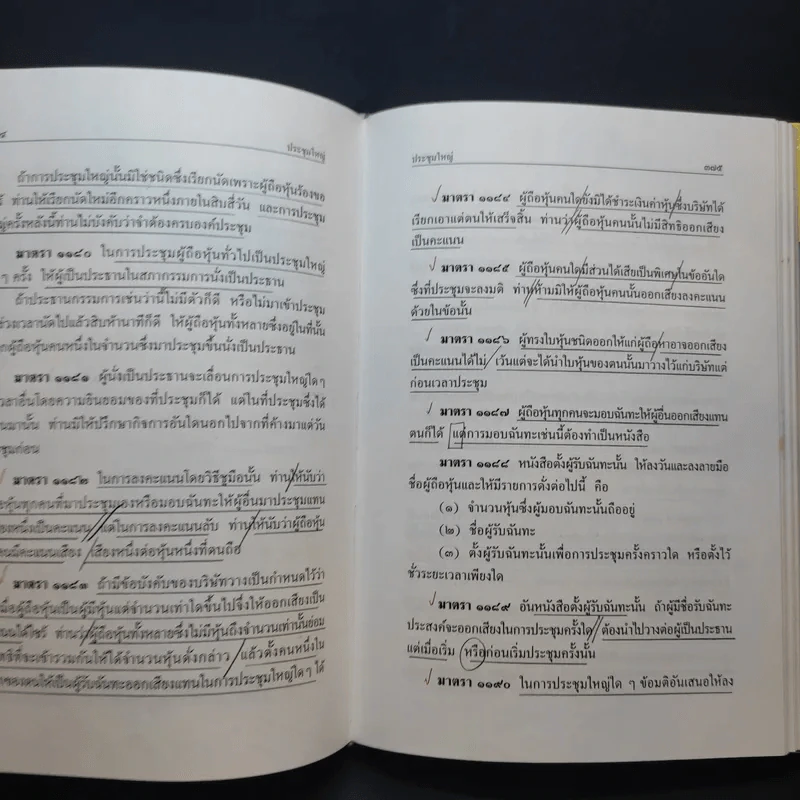 ประชุมใหญ่
ถ้าการประชุมใหญ่นั้นมิใช่ชนิดซึ่งเรียกนัดเพราะผู้ถือหุ้นร้องขอ
ท่านให้เรียกนัดใหม่อีกคราวหนึ่งภายในสิบสี่วัน และการประชุม
ครั้งหลังนี้ท่านไม่บังคับว่าจำต้องครบองค์ประชุม
มาตรา ๑๑๘๐ ในการประชุมผู้ถือหุ้นทั่วไปเป็นประชุมใหญ่
ๆ ครั้ง ให้ผู้เป็นประธานในสภากรรมการนั่งเป็นประธาน
ถ้าประธานกรรมการเช่นว่านี้ไม่มีตัวก็ดี หรือไม่มาเข้าประชุม
เวลานัดไปแล้วสิบห้านาทีก็ดี ให้ผู้ถือหุ้นทั้งหลายซึ่งอยู่ในที่นั้น
ผู้ถือหุ้นคนหนึ่งในจำนวนซึ่งมาประชุมขึ้นนั่งเป็นประธาน
มาตรา ๑๑๘๑ ผู้นั่งเป็นประธานจะเลื่อนการประชุมใหญ่ใดๆ
เวลาอื่นโดยความยินยอมของที่ประชุมก็ได้ แต่ในที่ประชุมซึ่งได้
มานั้น ท่านมิให้ปรึกษากิจการอันใดนอกไปจากที่ค้างมาแต่วัน
ก่อน
มาตรา ๑๑๘๒ ในการลงคะแนนโดยวิธีชูมือนั้น ท่านให้นับว่า
หุ้นทุกคนที่มาประชุมเองหรือมอบฉันทะให้ผู้อื่นมาประชุมแทน
เสียงหนึ่งเป็นคะแนน แต่ในการลงคะแนนลับ ท่านให้นับว่าผู้ถือหุ้น
คนมีคะแนนเสียง เสียงหนึ่งต่อหุ้นหนึ่งที่ตนถือ
มาตรา ๑๑๘๓ ถ้ามีข้อบังคับของบริษัทวางเป็นกำหนดไว้ว่า
เมื่อผู้ถือหุ้นเป็นผู้มีหุ้นแต่จำนวนเท่าใดขึ้นไปจึงให้ออกเสียงเป็น
ได้ไซร้ ท่านว่าผู้ถือหุ้นทั้งหลายซึ่งไม่มีหุ้นถึงจำนวนเท่านั้นย่อม
ที่จะเข้ารวมกันให้ได้จำนวนหุ้นดังกล่าว แล้วตั้งคนหนึ่งใน
ของตนให้เป็นผู้รับฉันทะออกเสียงแทนในการประชุมใหญ่ใดๆ ได้
ประชุมใหญ่ ๓๗๕
มาตรา ๑๑๘๔ ผู้ถือหุ้นคนใดยังมิได้ชำระเงินค่าหุ้นซึ่งบริษัทได้
เรียกเอาแต่ตนให้เสร็จสิ้น ท่านว่าผู้ถือหุ้นคนนั้นไม่มีสิทธิออกเสียง
เป็นคะแนน
มาตรา ๑๑๘๕ ผู้ถือหุ้นคนใดมีส่วนได้เสียเป็นพิเศษในข้ออันใด
ซึ่งที่ประชุมจะลงมติ ท่านห้ามมิให้ผู้ถือหุ้นคนนั้นออกเสียงลงคะแนน
ด้วยในข้อนั้น
มาตรา ๑๑๘๖ ผู้ทรงใบหุ้นชนิดออกให้แก่ผู้ถือหาอาจออกเสียง
เป็นคะแนนได้ไม่ เว้นแต่จะได้นำใบหุ้นของตนนั้นมาวางไว้แก่บริษัทแต่
ก่อนเวลาประชุม
มาตรา ๑๑๘๗ ผู้ถือหุ้นทุกคนจะมอบฉันทะให้ผู้อื่นออกเสียงแทน
ตนก็ได้ แต่การมอบฉันทะเช่นนี้ต้องทำเป็นหนังสือ
มาตรา ๑๑๘๘ หนังสือตั้งผู้รับฉันทะนั้น ให้ลงวันและลงลายมือ
ชื่อผู้ถือหุ้นและให้มีรายการดั่งต่อไปนี้ คือ
(๑) จำนวนหุ้นซึ่งผู้มอบฉันทะนั้นถืออยู่
(๒) ชื่อผู้รับฉันทะ
(๓) ตั้งผู้รับฉันทะนั้นเพื่อการประชุมครั้งคราวใด หรือตั้งไว้
ชั่วระยะเวลาเพียงใด
มาตรา ๑๑๘๙ อันหนังสือตั้งผู้รับฉันทะนั้น ถ้าผู้มีชื่อรับฉันทะ
ประสงค์จะออกเสียงในการประชุมครั้งใด ต้องนำไปวางต่อผู้เป็นประธาน
แต่เมื่อเริ่ม หรือก่อนเริ่มประชุมครั้งนั้น
มาตรา ๑๑๙๐ ในการประชุมใหญ่ใด ๆ ข้อมติอันเสนอให้ลง